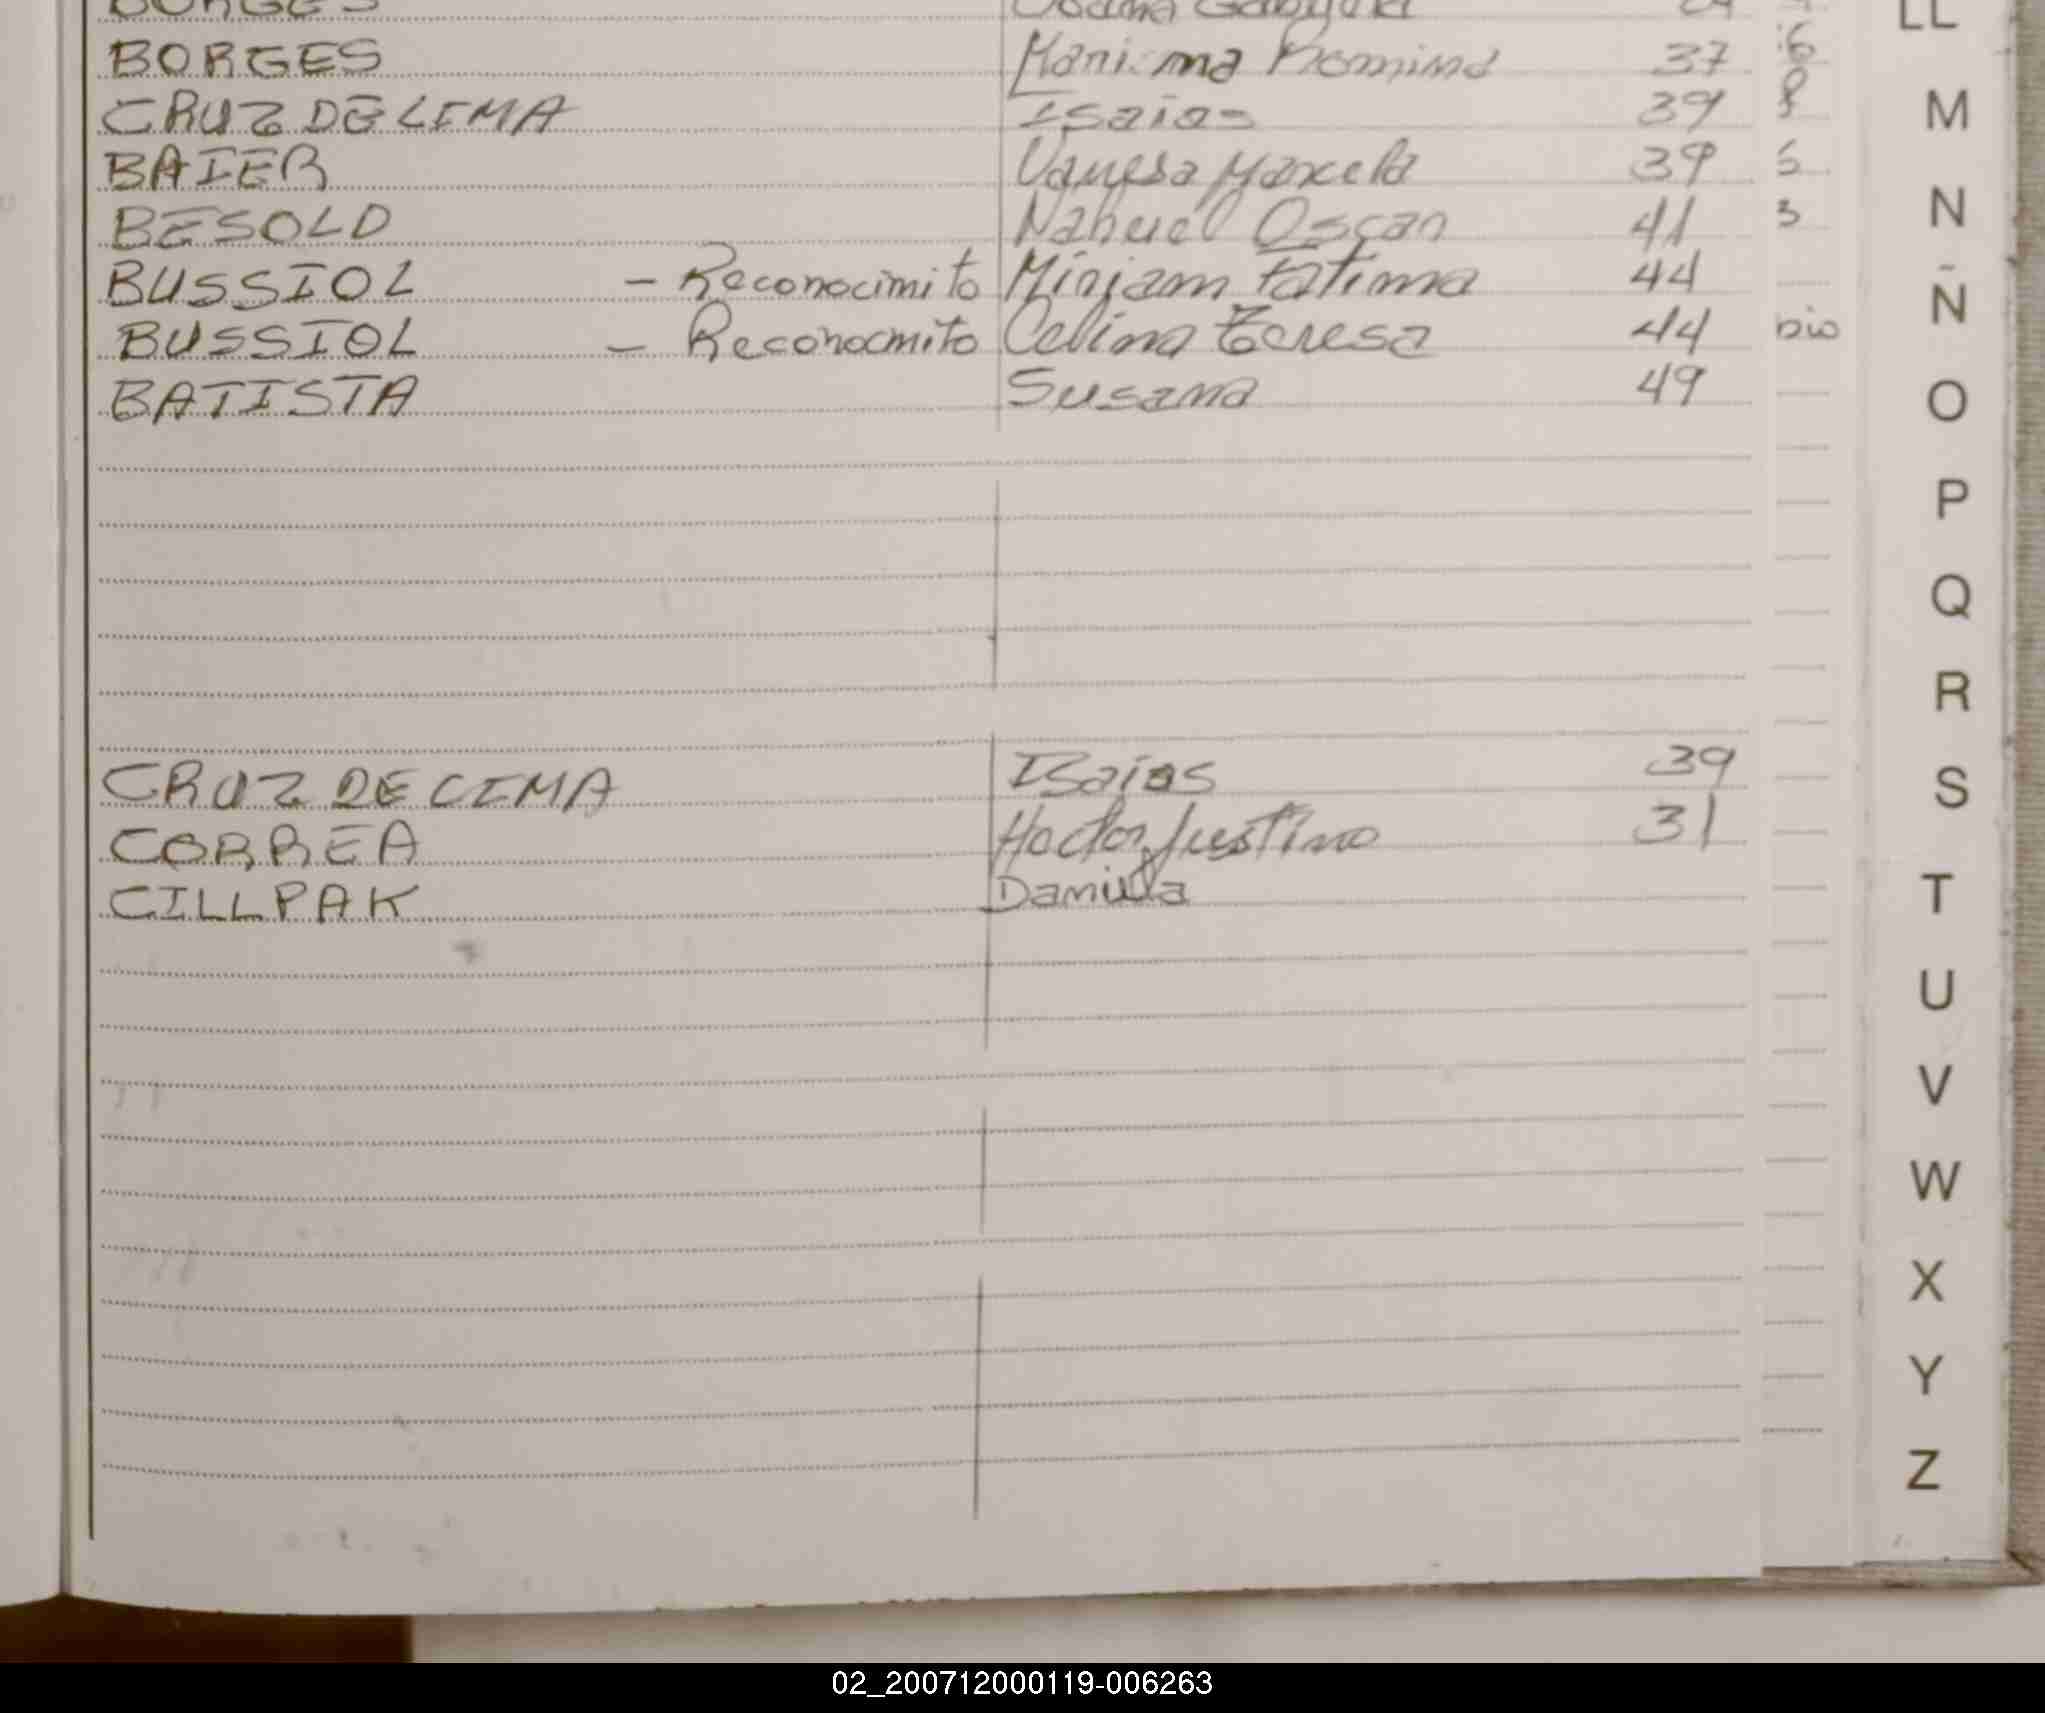 BORGES
BORGES Romina 37
CRUZ DE LIMA Isaias 39
BAIER Vanesa Marcela 39
BESOLD Nahuel Oscar 41
BUSSIOL - Reconocimito Miriam Fatima 44
BUSSIOL - Reconocmito Celina Teresa 44
BATISTA Susana 49
CRUZ DE CIMA Isaias 39
CORREA Hector Justino 31
CILLPAK Daniela
LL
M
N
Ñ
O
P
Q
R
S
T
U
V
W
X
Y
Z
02_200712000119-006263